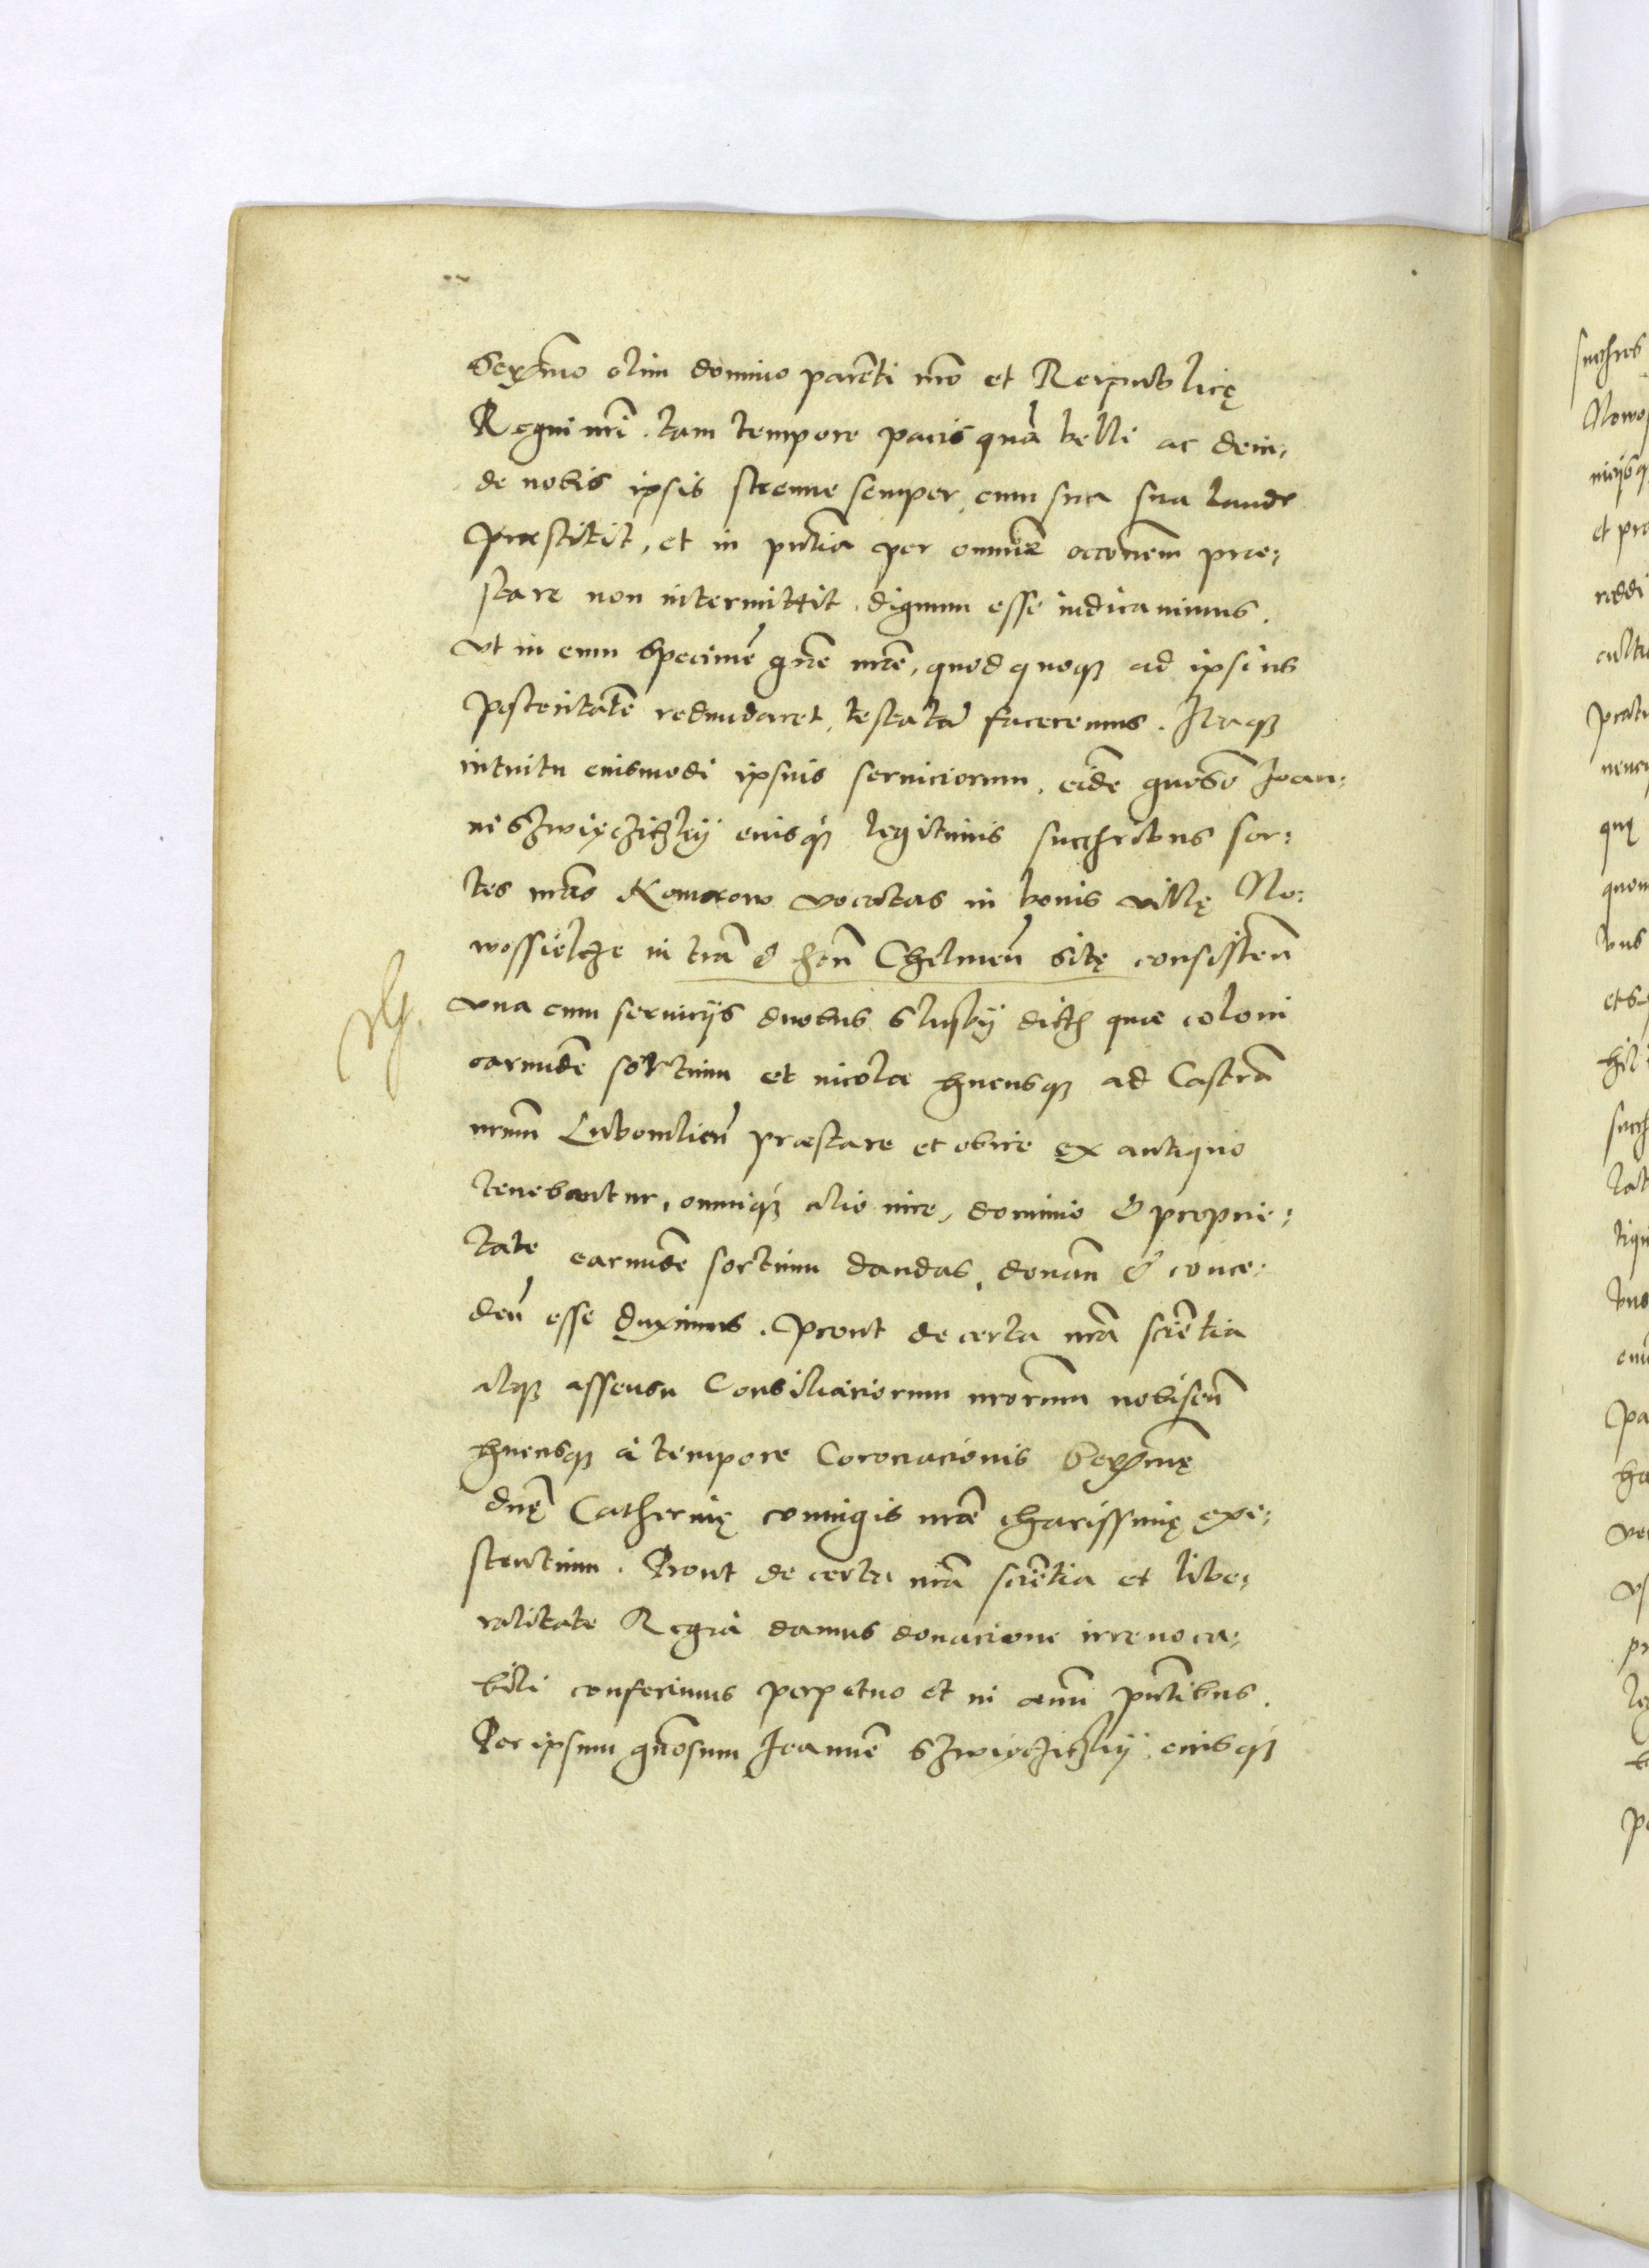 Serẽmo olim domino parẽti nrõ et Reipublicę
Regni nrĩ. tam tempore pacis quã belli ac dein:
de nobis ipsis strenue semper, cum sua sua laude
præstitit, et in pñtia per omnẽ occõnem præ:
stare non intermittit, dignum esse iudicauimus.
vt in eum specimẽ grẽ nrẽ, quod quoqz ad ipsius
posteritatẽ redundaret, testatũ faceremus. Itaqz
intuitu eiusmodi ipsius seruiciorum, eidẽ gnõso Joan:
ni Szwiyczichzky eiusqz legitimis succhribus sor:
tes nrãs Komorow vocatas in bonis villę No:
wossieltze in trã & Chelmeñ sitę consisteñ
vna cum seruicijs duobus Sluzby quæ coloni
earundẽ sortium et incolæ hucusqz ad Castrũ
nrum Lubomlieñ præstare et obire ex antiquo
tenebantur, omniqz alio iure, dominio & proprie:
tate earundẽ sortium dandas, donañ & conce:
deñ esse duximus. Prout de certa nrã sciẽtia
atqz assensu Consiliariorum nrorum nobiscũ
hucusqz à tempore Coronacionis Serẽmę
dnę Catherinę coniugis nrẽ charissimę exi:
stentium. Prout de certa nrã sciẽtia et libe:
ralitate Regia damus donacione irreuoca:
bili conferimus perpetuo et in æuũ pñtibus.
Per ipsum gnõsum Joannẽ Szwiyczichzky eiusqz